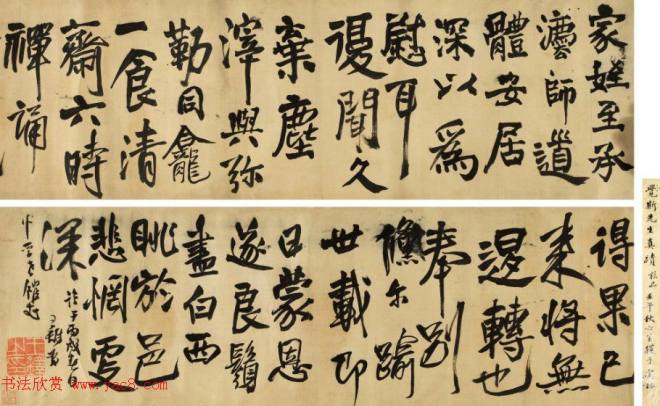 家姪至承
灋師道
體安居
深以爲
慰耳
復聞久
棄塵
滓與弥
勒同龕
一食清
齋六時
禪誦
得果已
來將無
退轉也
奉別
儵尔踰
世載即
日蒙恩
遂良鬚
盡白西
眺於邑
悲惘
深
丙戌
覺斯先生真蹟
书法欣赏 www.yac8.com